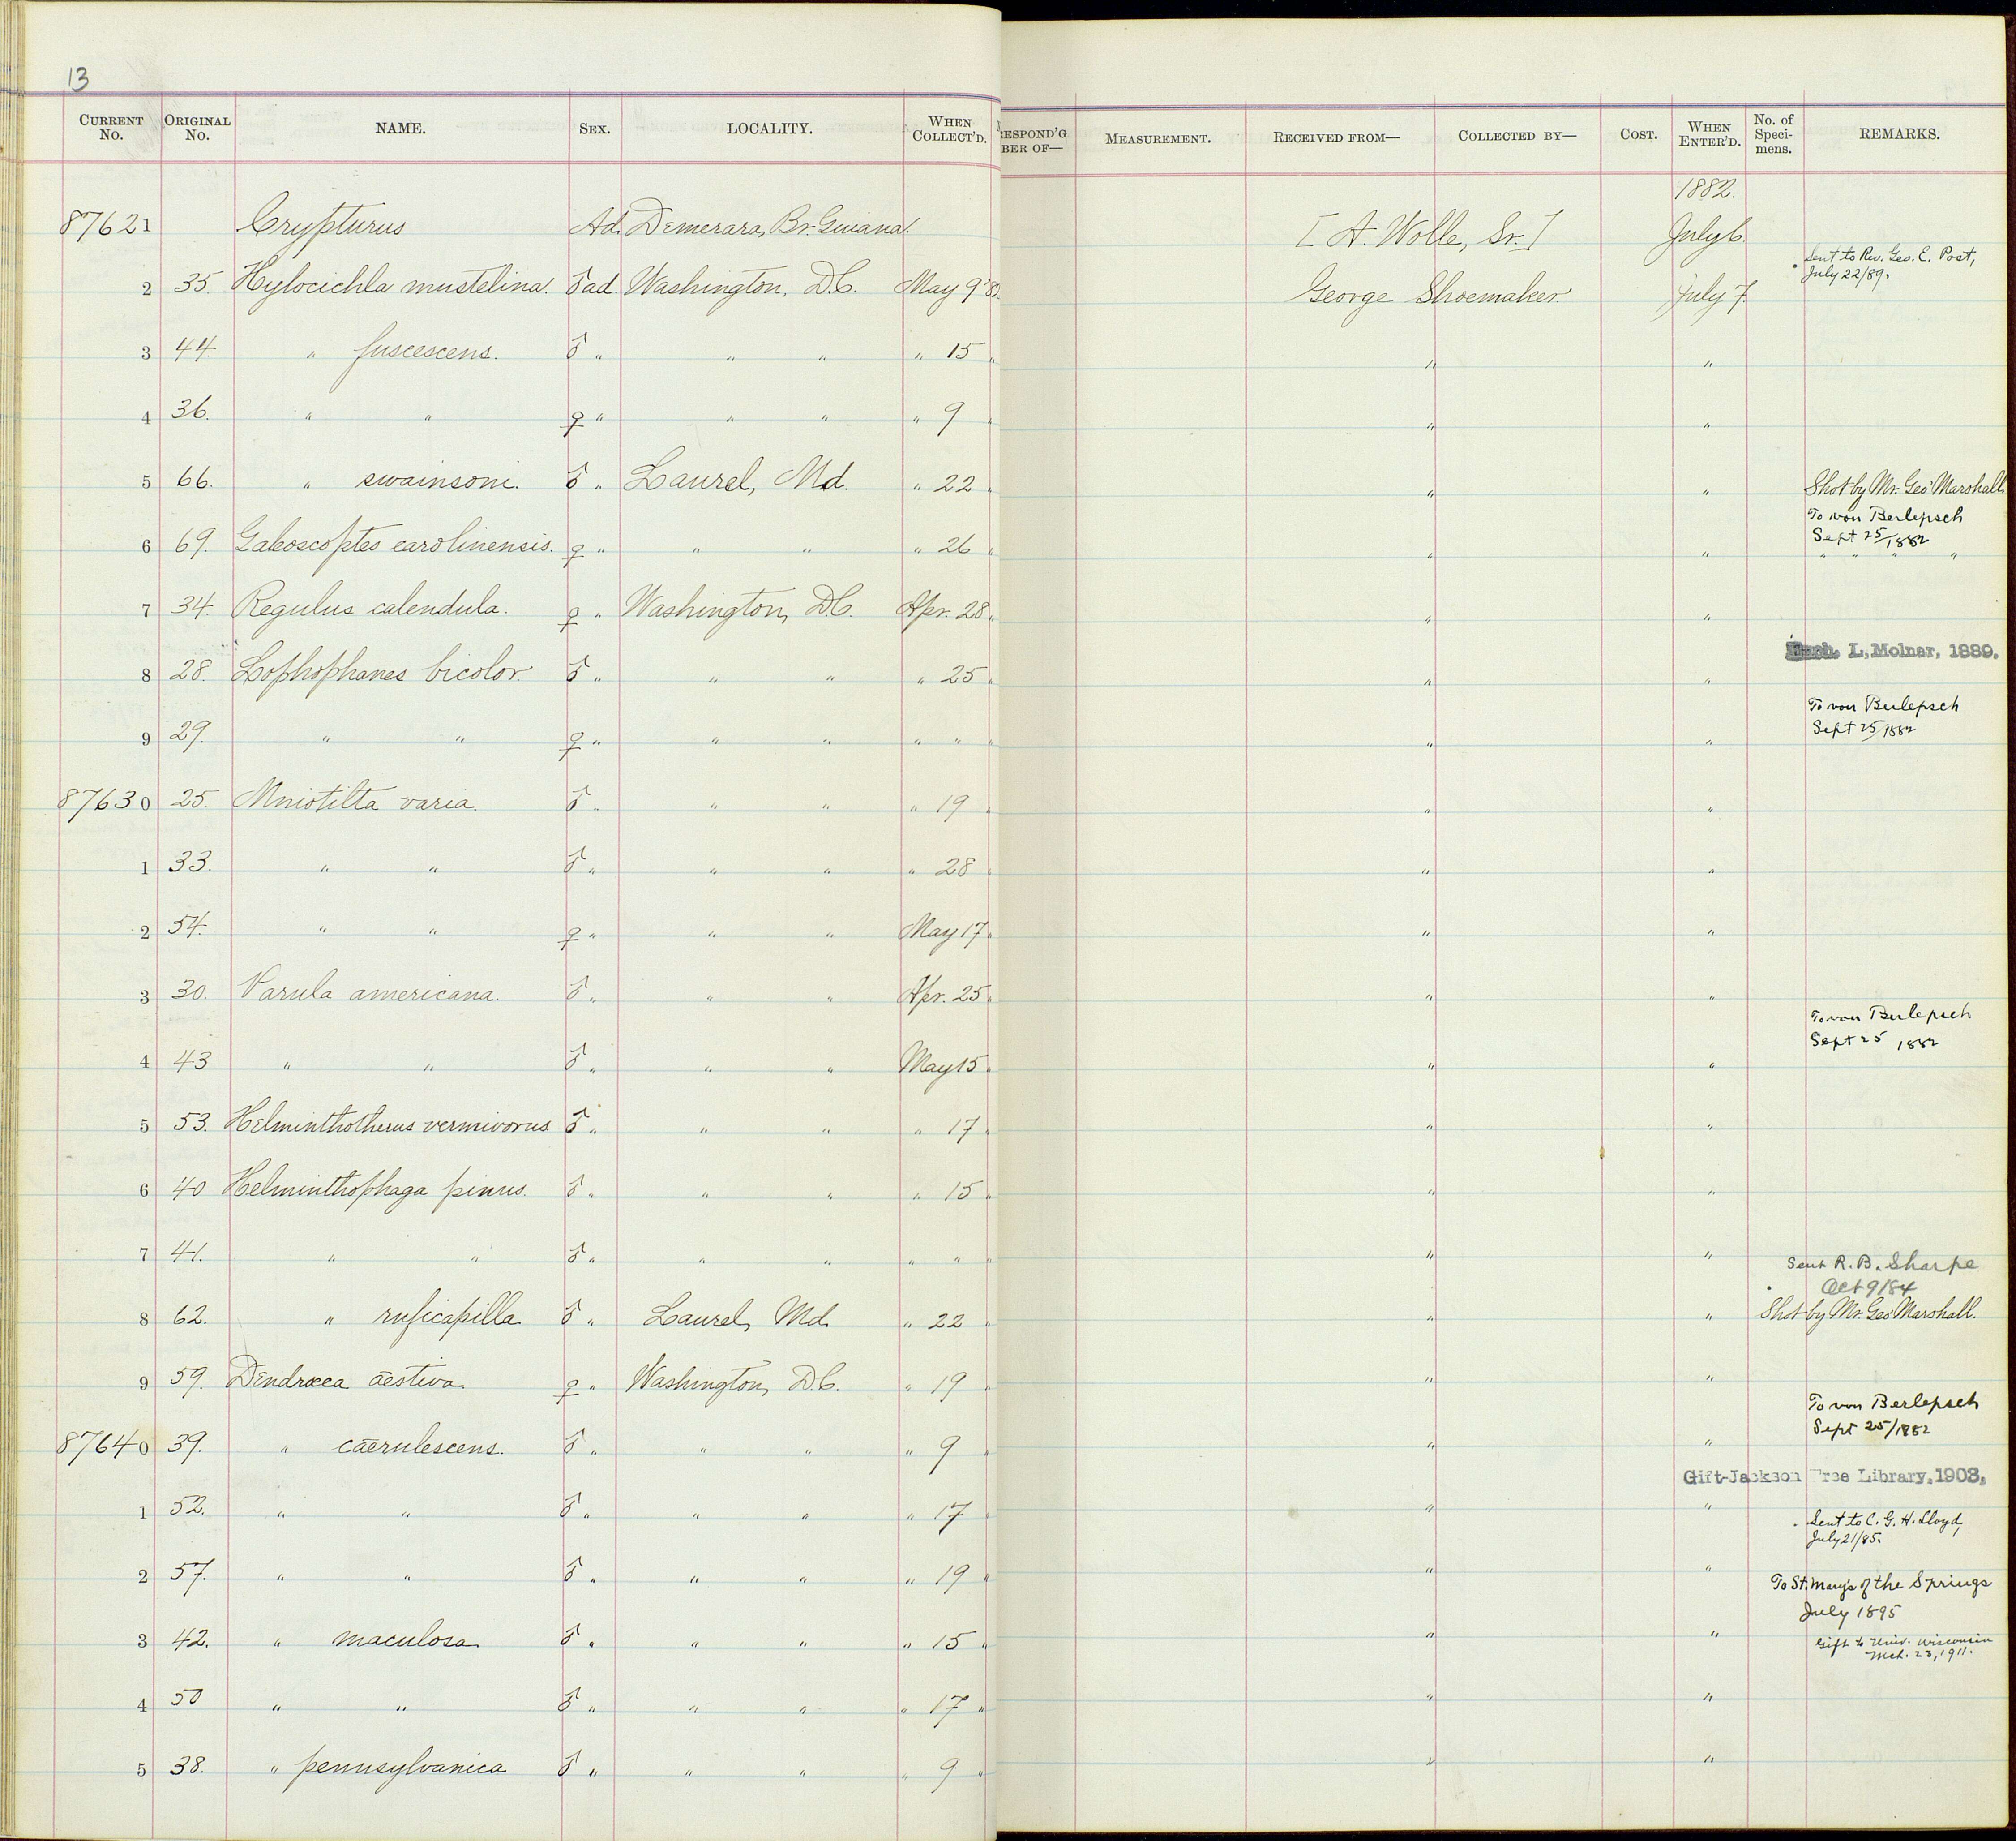 13
CURRENT No. ORIGINAL No. NAME. SEX. LOCALITY. WHEN COLLECT'D. RESPOND'G BER OF— MEASUREMENT. RECEIVED FROM— COLLECTED BY— COST. WHEN ENTER'D. No. of Speci- mens. REMARKS.
1882.
87621 Crypturus Ad. Demerara, Br. Guiana. [A. Wolle, Sr.] July 6.
2 35. Hylocichla mustelina. ♂ ad. Washington, D.C. May 9 '82 George Shoemaker. July 7. Sent to Rev. Geo. E. Post, July 22/89.
3 44. " fuscescens. ♂ " " " " 15 " " "
4 36. " " ♀ " " " " 9 " " "
5 66. " swainsoni. ♂ " Laurel, Md. " 22 " " " Shot by Mr. Geo Marshall
To von Berlepsch
Sept 25/1882
6 69. Galeoscoptes carolinensis. ♀ " " " " 26 " " " " " " "
7 34. Regulus calendula. ♀ " Washington, D.C. Apr. 28 " " "
L. Molnar, 1889.
8 28. Lophophanes bicolor. ♂ " " " " 25 " " "
To von Berlepsch
9 29. " " ♀ " " " " " " " " Sept 25/1882
87630 25. Mniotilta varia. ♂ " " " " 19 " " "
1 33. " " ♂ " " " " 28 " " "
2 54. " " ♀ " " " May 17 " " "
3 30. Parula americana. ♂ " " " Apr. 25 " " "
To von Berlepsch
Sept 25 1882
4 43 " " ♂ " " " May 15 " " "
5 53. Helminthotherus vermivorus ♂ " " " " 17 " " "
6 40 Helminthophaga pinus. ♂ " " " " 15 " " "
7 41. " " ♂ " " " " " " " " Sent R. B. Sharpe
Oct 9/84
8 62. " ruficapilla ♂ " Laurel, Md. " 22 " " " Shot by Mr. Geo Marshall.
9 59. Dendrœca æstiva. ♀ " Washington, D.C. " 19 " " "
To von Berlepsch
Sept 25/1882
87640 39. " cærulescens. ♂ " " " " 9 " " "
Gift-Jackson Free Library, 1903.
1 52. " " ♂ " " " " 17 " " "
Sent to C. G. H. Lloyd,
July 21/85.
2 57. " " ♂ " " " " 19 " " " To St. Mary's of the Springs
July 1895
3 42. " maculosa. ♂ " " " " 15 " " " Gift to Univ. Wisconsin
Mch. 23, 1911.
4 50 " " ♂ " " " " 17 " " "
5 38. " pennsylvanica ♂ " " " " 9 " " "